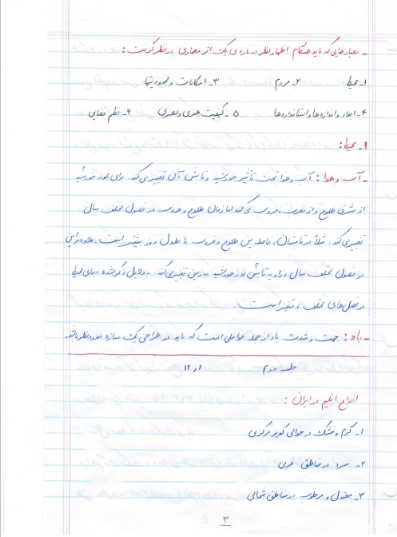 - معیارهایی که باید هنگام اظهار نظر درباره‌ی یک اثر معماری در نظر گرفت:
۱- محیط ۲- مردم ۳- امکانات و محدودیتها
۴- ابعاد و اندازه‌ها و استانداردها ۵- کیفیت هنری و بصری ۶- نظم فضایی
۱- محیط:
- آب و هوا: آب و هوا تحت تأثیر خورشید و تابش آن تغییر می‌کند. برای مورد خورشید
از مشرق طلوع و در مغرب غروب می‌کند اما زمان طلوع و غروب در فصول مختلف سال
تغییر می‌کند. مثلاً در تابستان، فاصله بین طلوع و غروب یا طول روز بیشتر است. علاوه بر این
در فصول مختلف سال، زاویه تابش نور خورشید به زمین تغییر می‌کند. دلایل ذکر شده، دمای محیط
در فصل‌های مختلف، متغیر است.
- باد: جهت و شدت باد از جمله عواملی است که باید در طراحی یک سازه مورد نظر باشد.
جلسه دوم
انواع اقلیم در ایران:
۱- گرم و خشک در حوالی کویر مرکزی
۲- سرد در مناطق غربی
۳- معتدل و مرطوب در مناطق شمالی
۳